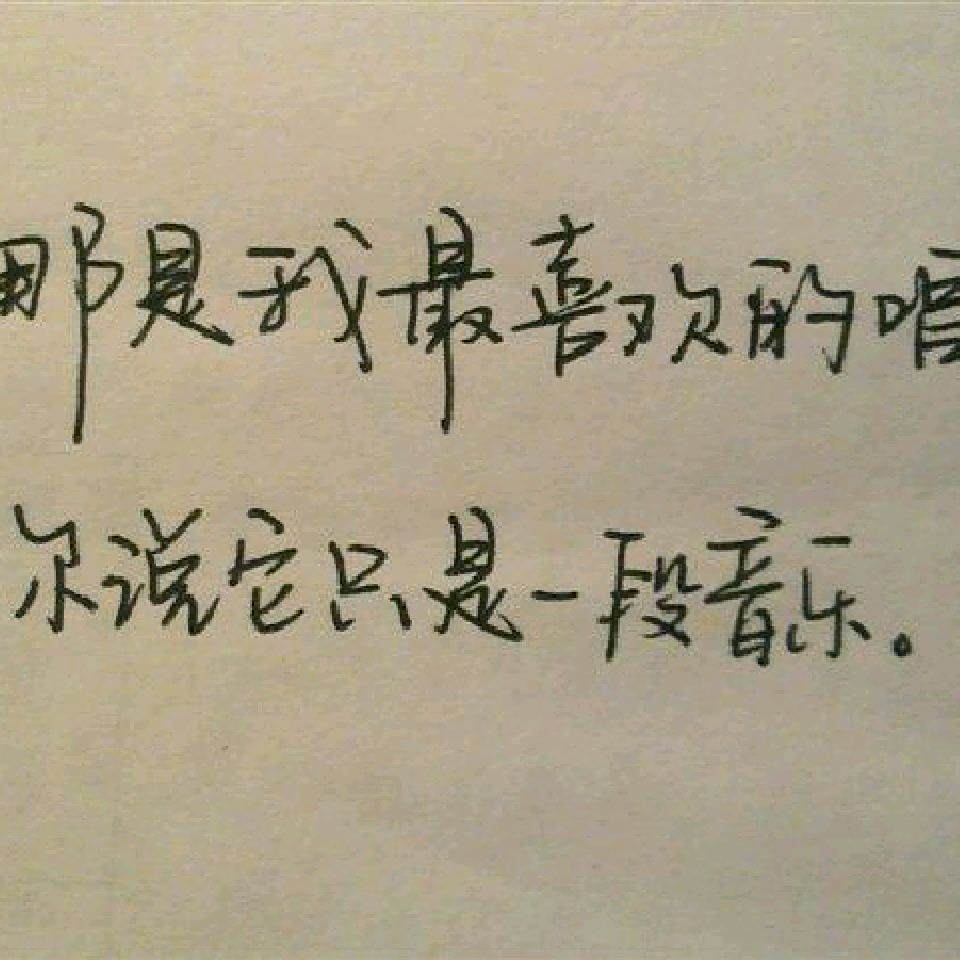 那是我最喜欢的唱
尔说它只是一段音乐。